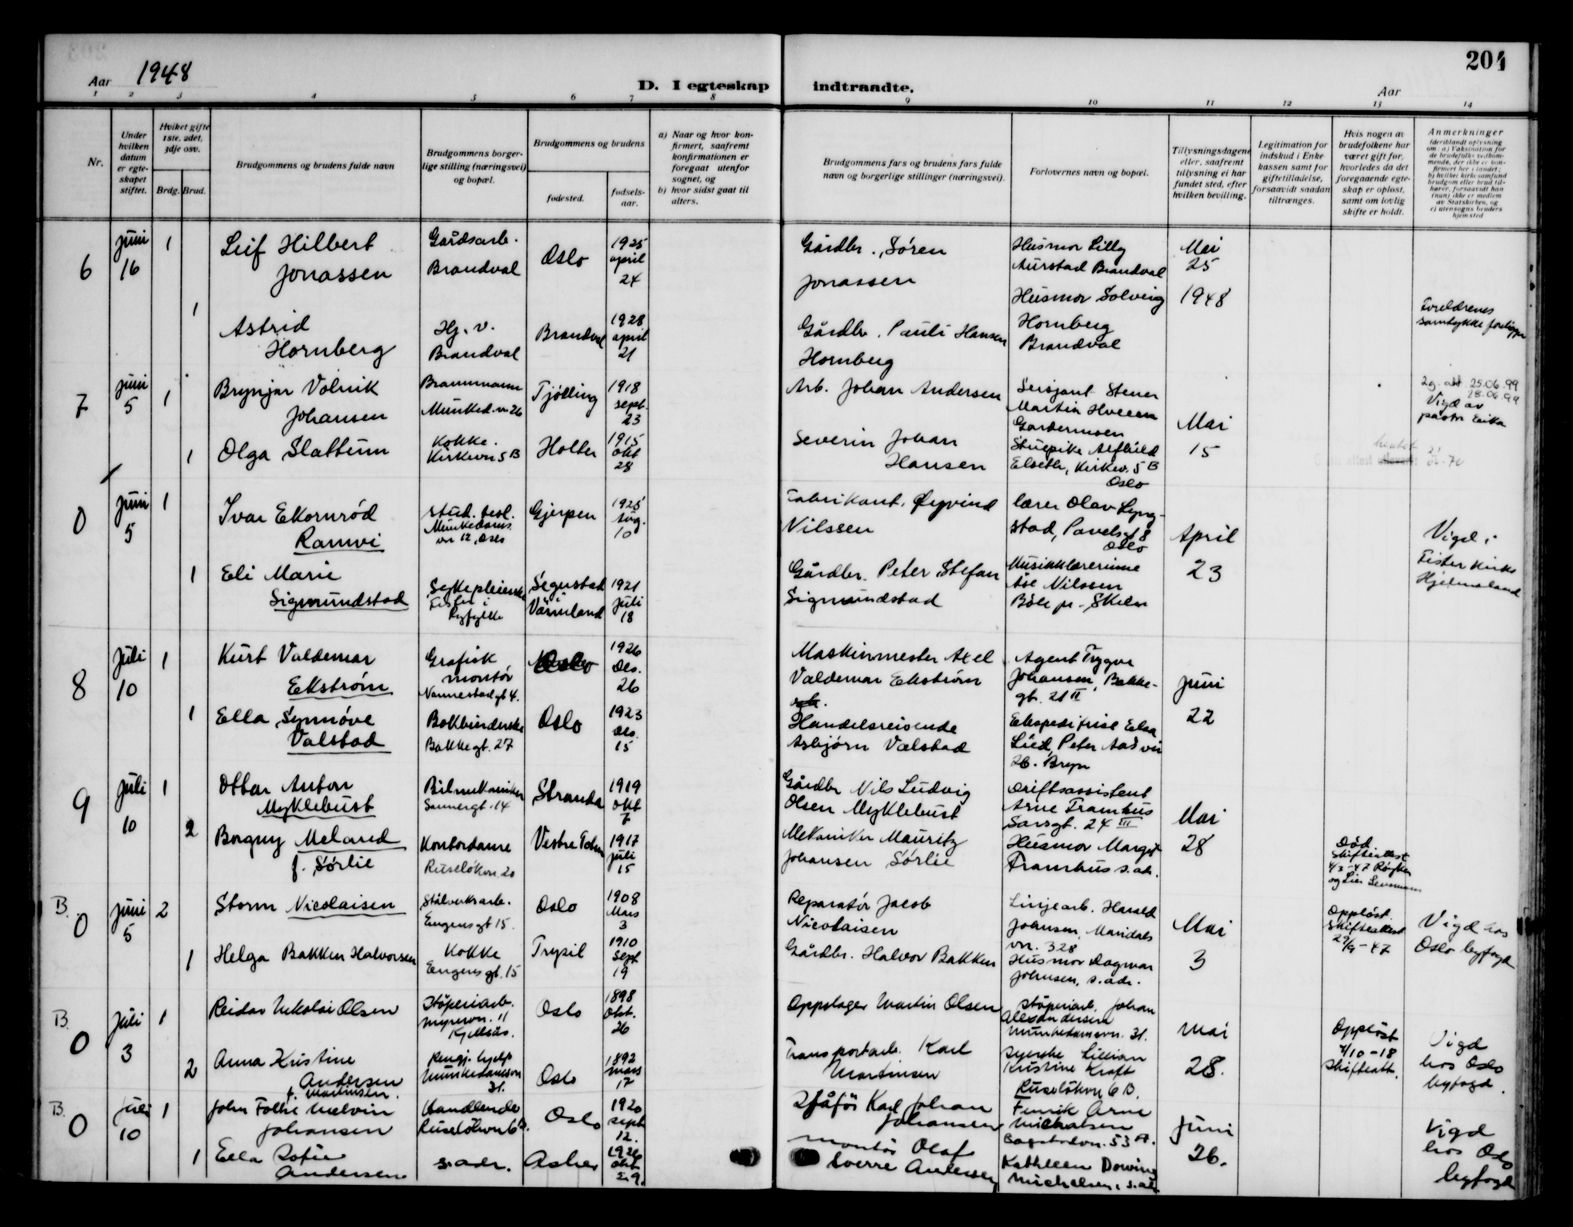 204
Aar 1948
D. I egteskap indtraadte.
Aar
1 2 3 4 5 6 7 8 9 10 11 12 13 14
Nr.
Under hvilken datum er egteskapet stiftet.
Hvilket gifte 1ste, 2det, 3dje osv.
Brdg. Brud.
Brudgommens og brudens fulde navn
Brudgommens borgerlige stilling (næringsvei) og bopæl.
Brudgommens og brudens
fødested.
fødselsaar.
a) Naar og hvor konfirmert, saafremt konfirmationen er foregaat utenfor sognet, og
b) hvor sidst gaat til alters.
Brudgommens fars og brudens fars fulde navn og borgerlige stillinger (næringsvei).
Forlovernes navn og bopæl.
Tillysningsdagene eller, saafremt tillysning ei har fundet sted, efter hvilken bevilling.
Legitimation for indskud i Enkekassen samt for giftetilladelse, forsaavidt saadan tiltrænges.
Hvis nogen av brudefolkene har været gift før, hvorledes da det foregaaende egteskap er opløst, samt om lovlig skifte er holdt.
Anmerkninger
6
Juni 16
1
Leif Hilbert Jonassen
Gårdsarb. Brandval
Oslo
1925 april 24
Gårdbr. Søren Jonassen
Husmor Lilly Aurstad Brandval
Husmor Solveig Hornberg Brandval
Mai 25 1948
1
Astrid Hornberg
Hj. v. Brandval
Brandval
1928 april 21
Gårdbr. Pauli Hansen Hornberg
Foreldrenes samtykke foreligger
7
Juni 5
1
Brynjar Volrik Johansen
Brannmann Munked.vn 26
Tjølling
1918 sept. 23
Arb. Johan Andersen
Sersjant Stener Martin Hveem Gardermoen
Mai 15
25.06.99
28.06.99
Vigd av pastor
1
Olga Slattum
Kokke. Kirkevn 5 B
Holter
1915 okt 28
Severin Johan Hansen
Stuepike Alfhild Elseth, Kirkev. 5 B Oslo
0
Juni 5
1
Ivar Ekornrød Ramvi
stud. teol. Munkedamsvn 12, Oslo
Gjerpen
1925 Aug. 10
Fabrikant. Øyvind Nilssen
lærer Olav Lyngstad, Pavelsgt 8 Oslo
April 23
Vigd i Fister Kirke Hjelmeland
1
Eli Marie Sigmundstad
Sykepleierske Fister i Ryfylke
Segerstad i Värmland
1921 juli 18
Gårdbr. Peter Stefan Sigmundstad
Musikklærerinne Åse Nilssen Böle pr. Skien
8
Juli 10
1
Kurt Valdemar Ekström
Grafisk montør Nannestadgt 4.
Oslo
1926 Des. 26
Maskinmester Axel Valdemar Ekström
Agent Trygve Johansen, Bakkegt. 21 II
Juni 22
1
Ella Synnöve Valstad
Bokbinderske Bakkegt. 27
Oslo
1923 Des. 15
Handelsreisende Asbjørn Valstad
Ekspeditrise Elsa Lied, Peter Aas vei 26. Bryn
9
Juli 10
1
Ottar Anton Myklebust
Bilmekaniker Sannergt. 14
Stranda
1919 okt 7
Gårdbr Nils Ludvig Olsen Myklebust
Driftsassistent Arne Framhus Sarsgt. 24 III
Mai 28
2
Borgny Meland f. Sørlie
Kontordame Ruseløkvn. 20
Vestre Toten
1917 juli 15
Mekaniker Mauritz Johansen Sørlie
Husmor Margit Framhus s. adr.
Død Skifteattest 4/3-47
B.
0
Juni 5
2
Storm Nicolaisen
Stålverksarb. Eugensgt 15.
Oslo
1908 Mars 3
Reparatør Jacob Nicolaisen
Linjearb. Harald Johansen, Maridalsvn. 328
Mai 3
Oppløst. Skifteattest 29/9-47
Vigd hos Oslo byfogd
1
Helga Bakken Halvorsen
Kokke Eugensgt. 15
Trysil
1910 Sept 19
Gårdbr. Halvor Bakken
Husmor Dagmar Johansen, s. adr.
B.
0
Juli 3
1
Reidar Nikolai Olsen
Støperiarb. Myrervn. 11 Kjelsås.
Oslo
1898 Okt. 26
Oppstager Martin Olsen
støperiarb. Johan Alexandersen Munkedamsvn. 31.
Mai 28.
Oppløst 4/10-18 Skifteatt.
Vigd hos Oslo byfogd.
2
Anna Kristine Andersen f. Martinsen.
Rengj. hjelp Munkedamsvn 31.
Oslo
1892 mars 17
Transportarb. Karl Martinsen
syerske Lillian Kristine Kraft Ruseløkvn 6 B.
B.
0
Juli 10
1
John Folke Melvin Johansen
Handlende Ruseløkvn 6 B.
Oslo
1920 sept 12.
Sjåfør Karl Johan Johansen
Fenrik Arne Michaelsen Bogstadvn. 53 A.
Juni 26.
Vigd hos Oslo byfogd
1
Ella Sofie Andersen
s. adr.
Asker
1926 okt 29.
montør Olaf Sverre Andersen
Kathleen Dowing Michelsen, s. adr.